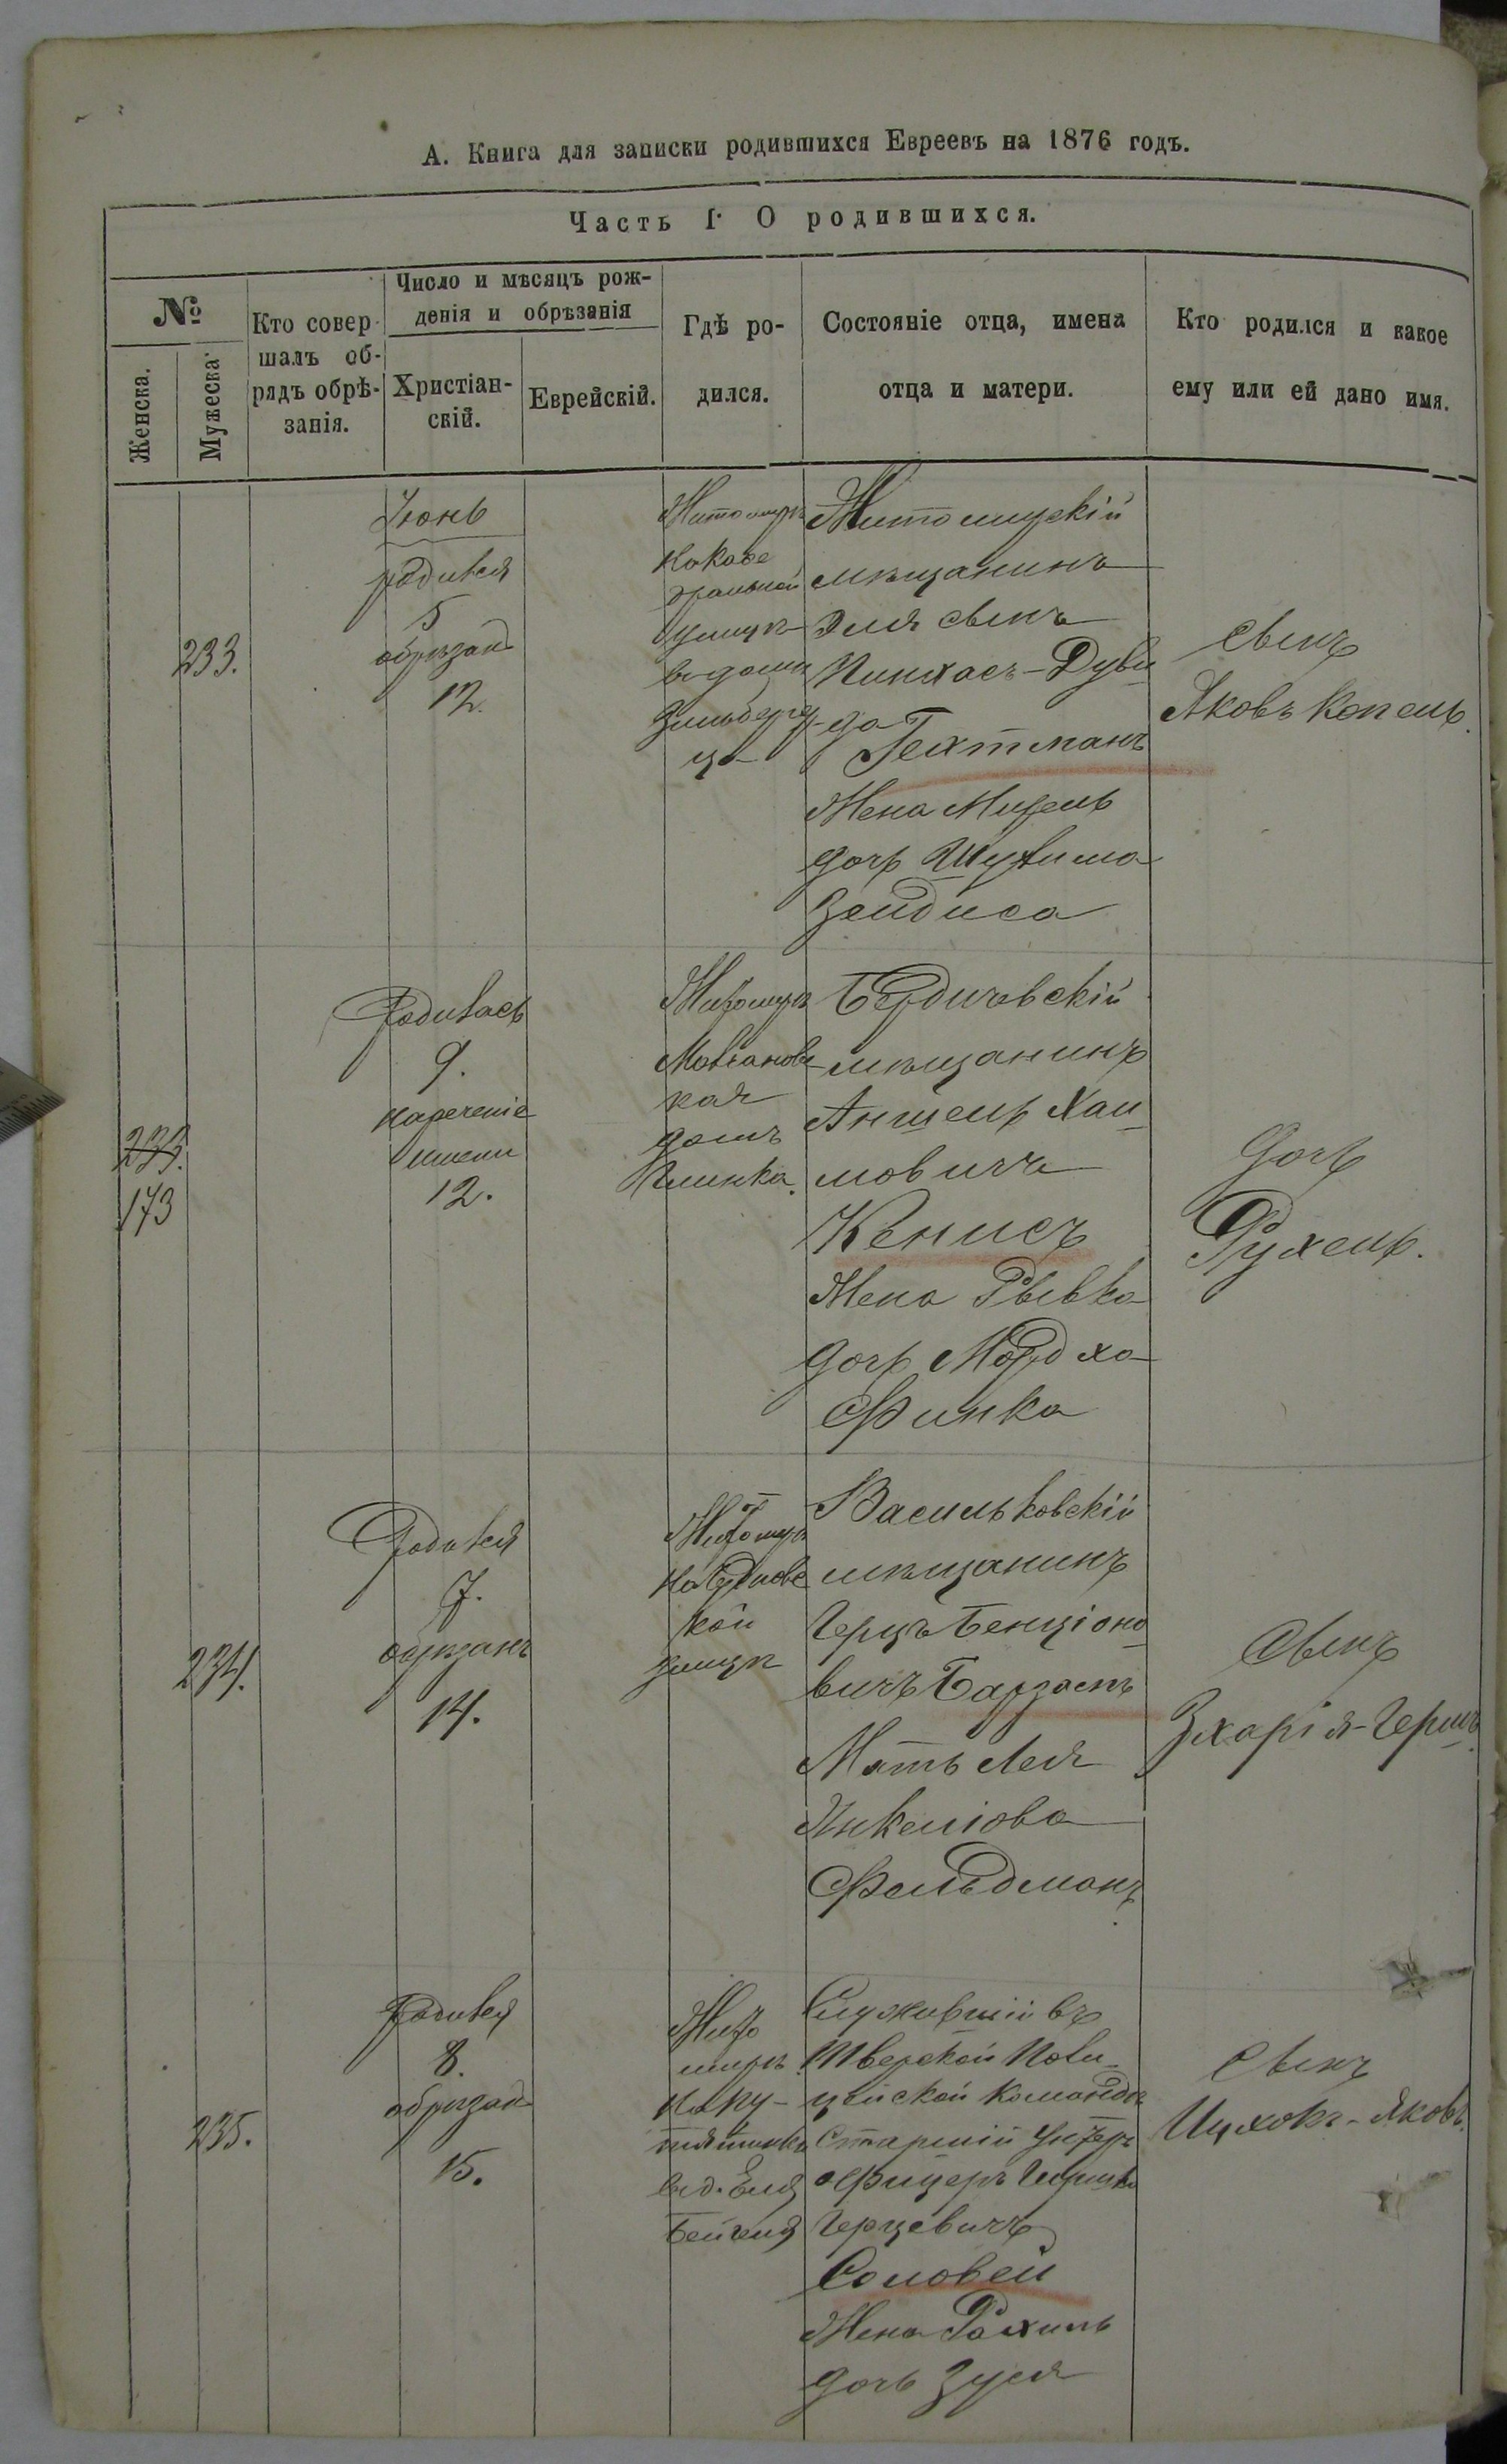 А. Книга для записки родившихся Евреевъ на 1876 годъ.
Часть I. О родившихся.
№
Женска.
Мужеска
Кто совер-
шалъ об-
рядъ обрѣ-
занія.
Число и мѣсяцъ рож-
денія и обрѣзанія
Христіан-
скій.
Еврейскій.
Гдѣ ро-
дился.
Состояніе отца, имена
отца и матери.
Кто родился и какое
ему или ей дано имя.
233.
Іюнь
родился
5
обрѣзанъ
12.
Житомиръ
на Кафе
дральной
улицѣ
въ домѣ
Зильбера
Житомирскій
мѣщанинъ
Эля сынъ
Пинхасъ-Дуви
да
Гехтманъ
Жена
дочь
Зейдиса
сынъ
Яковъ Копель.
233.
173
Родилась
9.
нареченіе
имени
12.
Житомиръ
кая
домъ
Глинка.
Бердичевскій
мѣщанинъ
Аншель Хаи
мовичъ
Кенисъ
Жена Рывка
дочь Мордха
Финка
дочь
Рухель.
234.
Родился
7.
обрѣзанъ
14.
Житомиръ
на Чудновс
кой
улицѣ
Васильковскій
мѣщанинъ
Герцъ Бенціоно
вичъ
Мать Лея
Янкеліова
Фельдманъ
сынъ
Зхарія-Гершъ.
235.
Родился
8.
обрѣзанъ
15.
Жито
миръ.
на Пу-
тятинкѣ
въ д.
Служившій въ
Тверской Поли
цейской Командѣ
старшій унтеръ
офицеръ Гершко
Герцевичъ
Соловей
Жена Рахиль
дочь Зуся
сынъ
Ицхокъ-Яковъ.